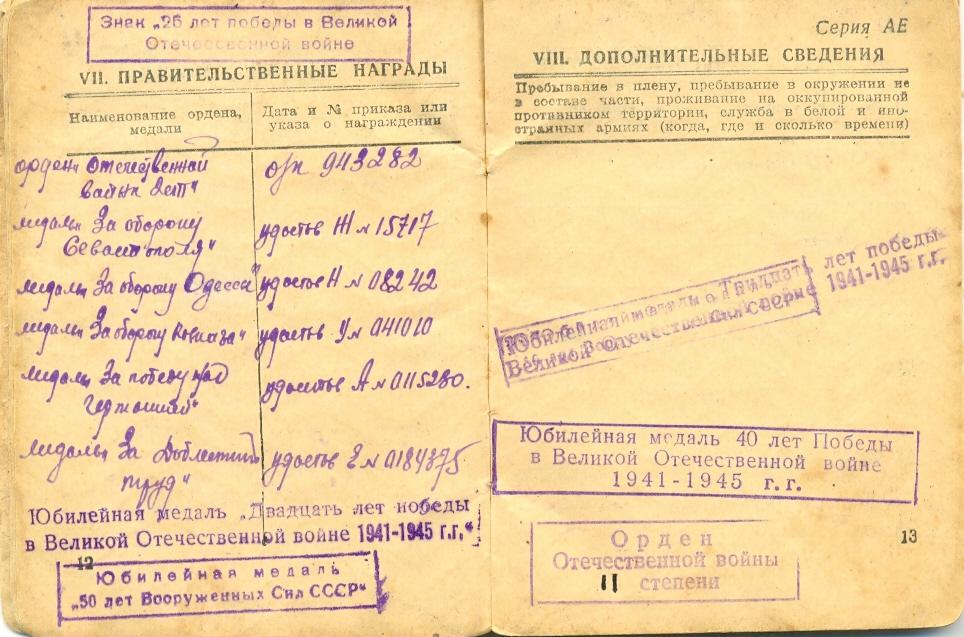 Знак „25 лет победы в Великой
Отечественной войне
VII. ПРАВИТЕЛЬСТВЕННЫЕ НАГРАДЫ
Наименование ордена,
медали
Дата и № приказа или
указа о награждении
орден Отечественной
орд 943282
медаль За оборону
Севастополя"
удостов Ж № 15717
медаль За оборону Одессы"
удостов Н № 08242
медаль За оборону Кавказа"
удостов У № 041010
медаль За победу над
Германией"
удостов А № 0115280.
медаль За Доблестный
труд"
удостов Е № 0184375
Юбилейная медаль „Двадцать лет победы
в Великой Отечественной войне 1941-1945 г.г."
12
Юбилейная медаль
„50 лет Вооруженных Сил СССР"
Серия АЕ
VIII. ДОПОЛНИТЕЛЬНЫЕ СВЕДЕНИЯ
Пребывание в плену, пребывание в окружении не
в составе части, проживание на оккупированной
противником территории, служба в белой и ино-
странных армиях (когда, где и сколько времени)
Юбилейная медаль „Тридцать лет победы
Великой Отечественной войне 1941-1945 г.г.
Юбилейная медаль 40 лет Победы
в Великой Отечественной войне
1941-1945 г.г.
Орден
Отечественной войны
II степени
13